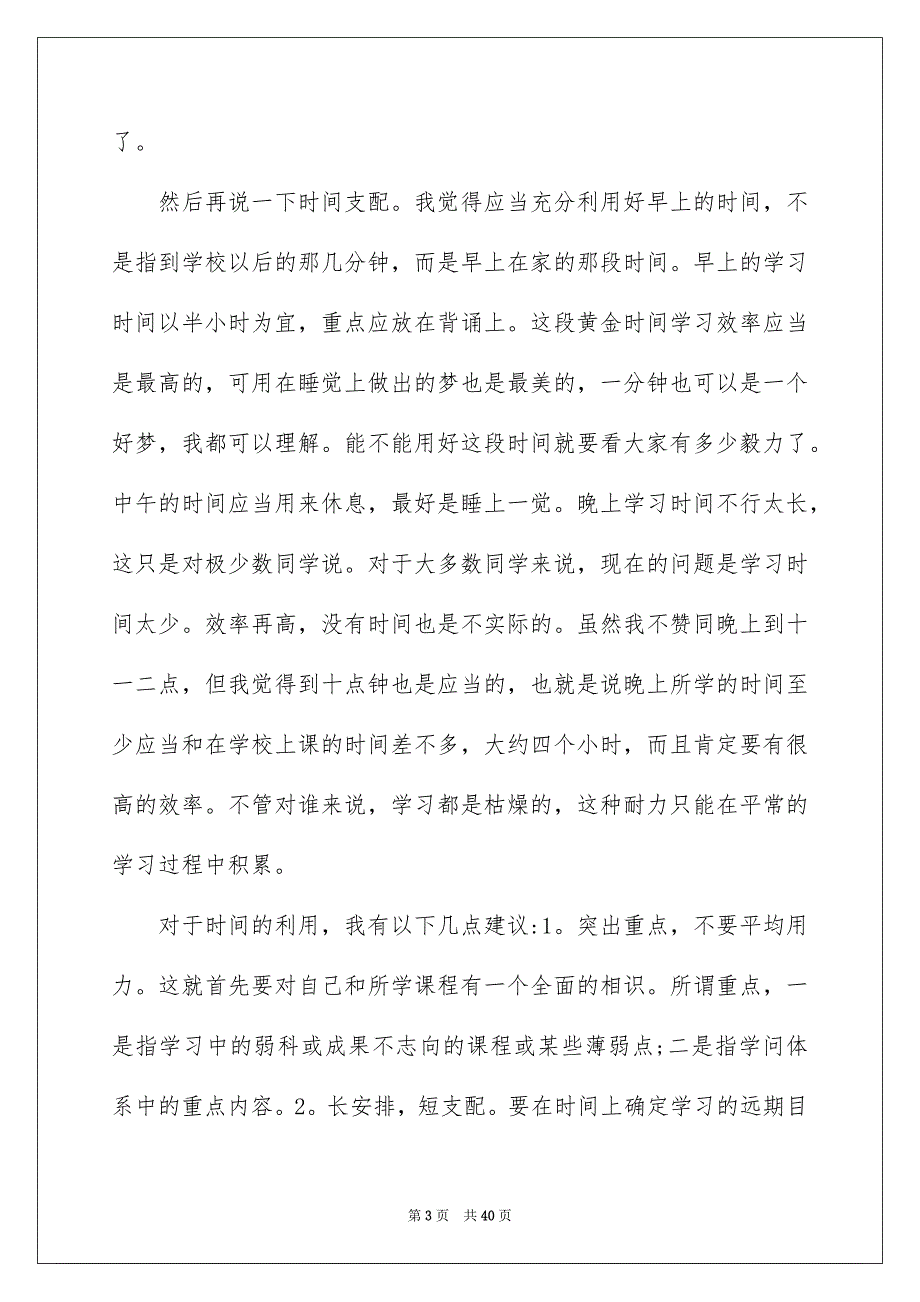 了。
然后再说一下时间支配。我觉得应当充分利用好早上的时间，不
是指到学校以后的那几分钟，而是早上在家的那段时间。早上的学习
时间以半小时为宜，重点应放在背诵上。这段黄金时间学习效率应当
是最高的，可用在睡觉上做出的梦也是最美的，一分钟也可以是一个
好梦，我都可以理解。能不能用好这段时间就要看大家有多少毅力了。
中午的时间应当用来休息，最好是睡上一觉。晚上学习时间不行太长，
这只是对极少数同学说。对于大多数同学来说，现在的问题是学习时
间太少。效率再高，没有时间也是不实际的。虽然我不赞同晚上到十
一二点，但我觉得到十点钟也是应当的，也就是说晚上所学的时间至
少应当和在学校上课的时间差不多，大约四个小时，而且肯定要有很
高的效率。不管对谁来说，学习都是枯燥的，这种耐力只能在平常的
学习过程中积累。
对于时间的利用，我有以下几点建议:1。突出重点，不要平均用
力。这就首先要对自己和所学课程有一个全面的相识。所谓重点，一
是指学习中的弱科或成果不志向的课程或某些薄弱点;二是指学问体
系中的重点内容。2。长安排，短支配。要在时间上确定学习的远期目
第 3 页 共 40 页